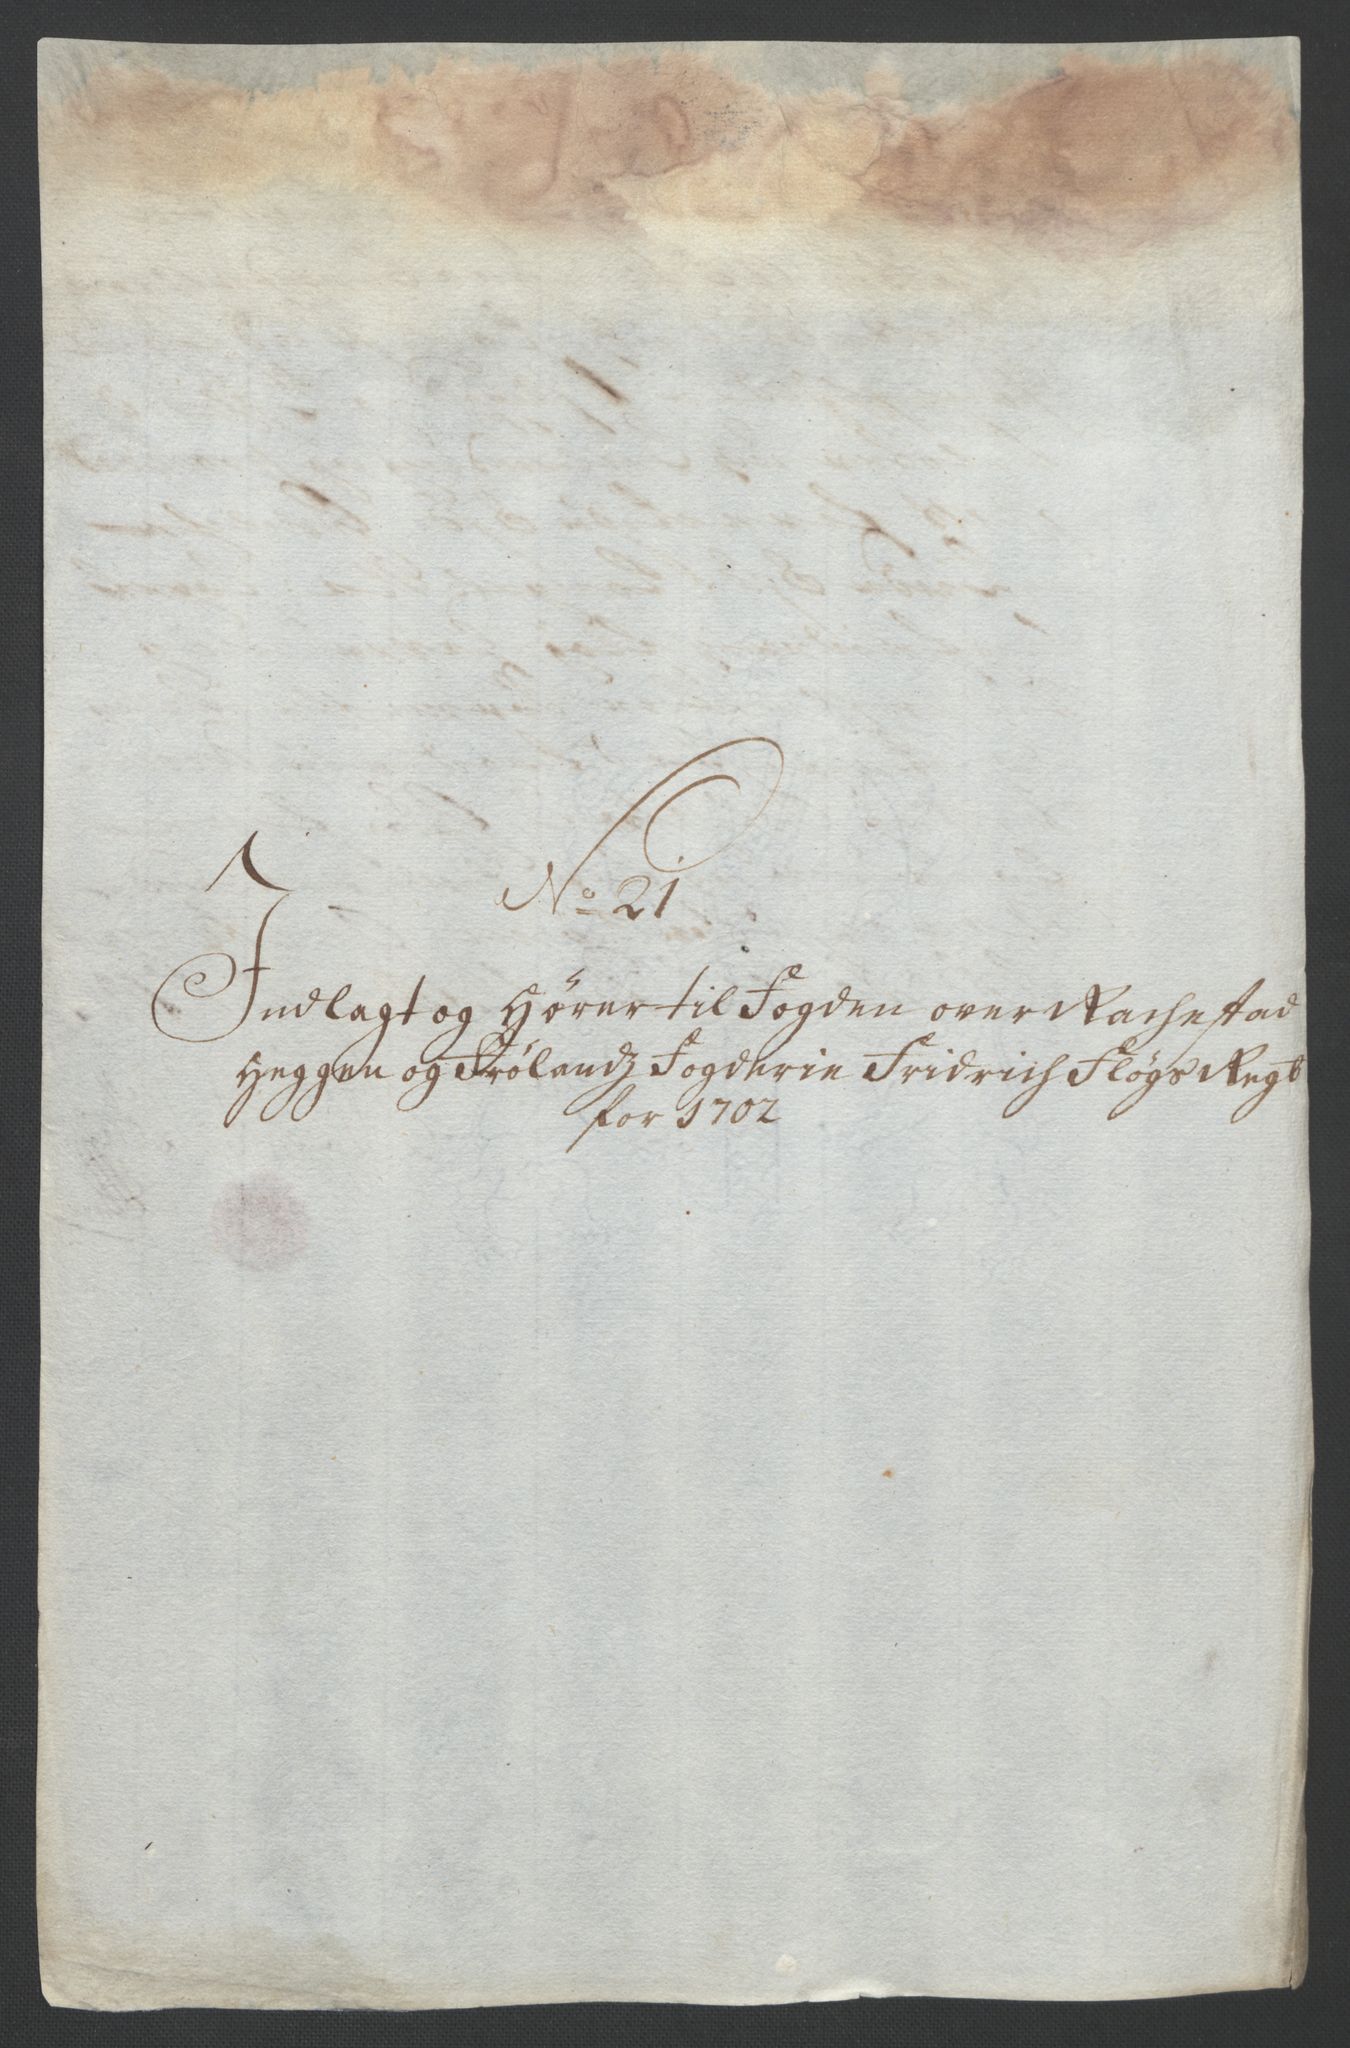 No 21
Indlagt og hører til Fogden over Rachestad
Heggen og Frølandz Fogderie Fridrich Fløgs Regb
for 1702